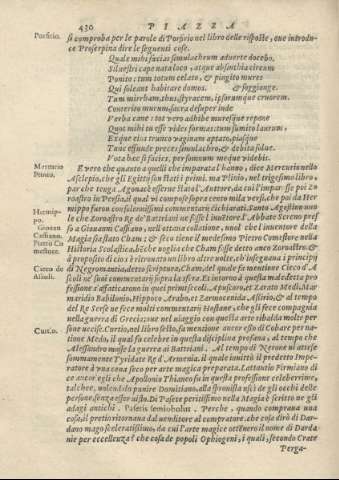 430 PIAZZA
Porfirio.
si comproba per le parole di Porfirio nel libro delle risposte, oue introdu-
ce Proserpina dire le seguenti cose.
Quale mihi facias simulachrum aduerte docebo,
Siluestri cape nata loco, atque absinthia circum
Ponito: tum totum celato, & pingito mures
Qui soleant habitare domos. & soggionge.
Tum mirrham, thus, styracem, ipsorumque cruorem.
Conterito murum, sacra desuper inde
Verba cane: tot vero adhibe muresque repone
Quot mihi tu esse vides formas: tum sumito laurum,
Exque eius trunco vaginam aptato, piasque
Tunc effunde preces simulachro, & debita solue.
Vota hæc si facies, per somnum meque videbis.
Mercurio
E vero che quanto a quelli che imparata l'hanno, dice Mercurio nello
Asclepio, che gli Egitty sien stati i primi. ma Plinio, nel trigesimo libro,
par che tenga Agonace esserne stato l'Auttore, da cui l'imparasse poi Zo
roastro in Persia, il qual vi compose sopra cento mila versi, che poi da Her
Hermip-
po.
mippo furon con commentarij dichiarati. Santo Agostino vuo
le che Zoroastro Re de' Battriani ne fosse l'inuentore. l'Abbate Sereno pres
Giouan
Cassiano.
so a Giouanni Cassiano, nell' ottaua collatione, vuol che l'inuentore della
Magia sia stato Cham; & seco tiene il medesimo Pietro Comestore nella
Pietro Co
mestore.
Historia Scolastica. Et che voglia che Cham fosse detto anco Zoroastro, &
à proposito di cio s'è ritrouato un libro altre volte, ch'insegnaua i principij
Cieco de
Ascoli.
di Negromantia, detto scrittura, Cham, del quale fa mentione Cieco d'A
scoli ne' suoi commentarij sopra la sfera. Et intorno à questa maledetta pro
fessione s'affaticarono in quei primi secoli, Apuscoro, et Zarato Medi, Mar
maridio Babilonio, Hippoco Arabo, et Zarmocenida Assirio, & al tempo
del Re Serse ne fece molti commentarij Hostane, che gli fece compagnia
nella guerra di Grecia; onde nel uiaggio con questa arte ribalda molte per
Curtio.
sone uccise. Curtio, nel libro sesto, fa mentione ancor esso di Cobare per na-
tione Medo, il qual fu celebre in questa disciplina profana, al tempo che
Alessandro mosse la guerra ai Battriani. Al tempo di Nerone ui attese
sommamente Tyridate Re d'Armenia, il quale inuitò il predetto Impe-
ratore à una cena seco per arte magica preparata. Lattantio Firmiano di
ce ancor egli che Apollonio Thianeo fu in questa professione celeberrimo,
talche, volendo punire Domitiano, alla sprouista uscì de gli occhi delle
persone, senza esser uisto. Di Pasete peritissimo nella Magia è scritto ne gli
adagi antichi. Pasetis semiobolus. Perche, quando compraua una
cosa, il pretio ritornaua dal uenditore al compratore. che cosa dirò di Dar-
dano mago sceleratissimo, da cui l'arte magica ottennero il nome di Darda
nie per eccellenza? che cosa de popoli Ophiogeni, i quali, secondo Crate
Perga-